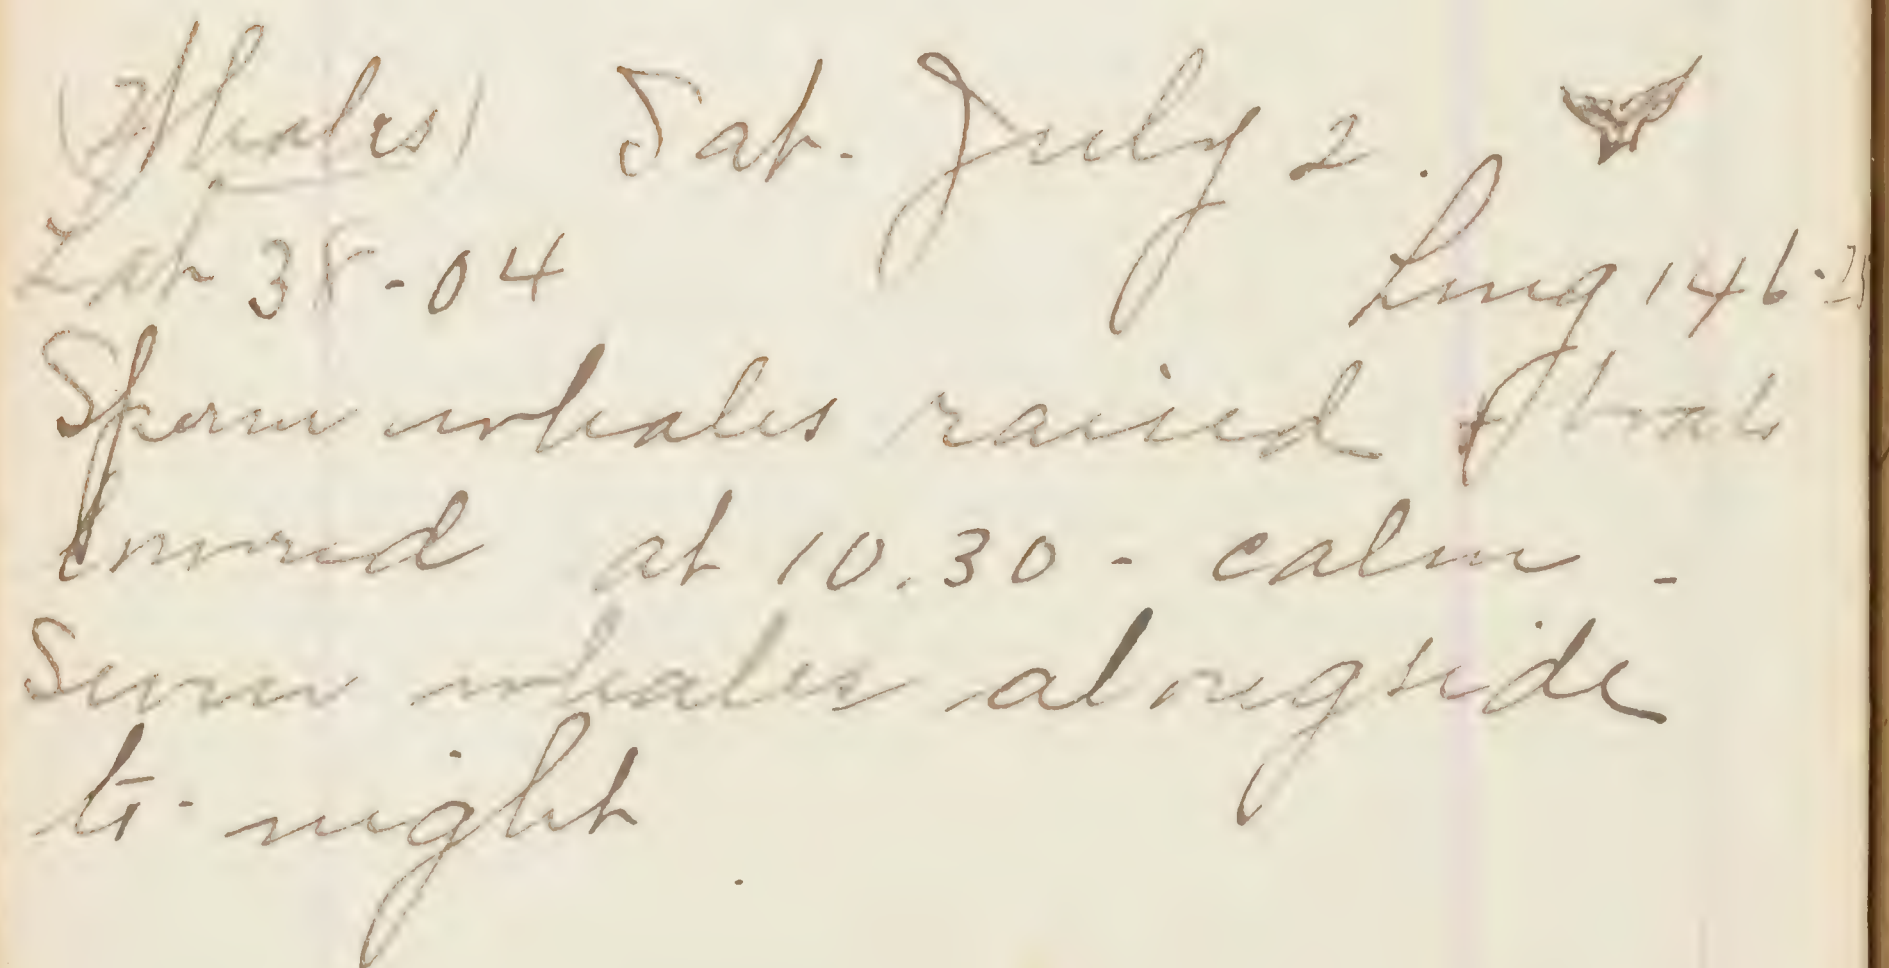 (Whales) Sat. July 2.
Lat 38-04 Long 146-
Sperm whales raised & boats
lowered at 10.30 - calm -
Seven whales alongside
to-night